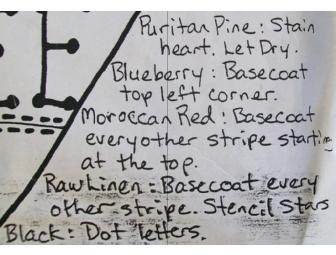 Puritan Pine: Stain
heart. Let Dry.
Blueberry: Basecoat
top left corner.
Moroccan Red: Basecoat
every other stripe starting
at the top.
Raw Linen: Basecoat every
other stripe. Stencil Stars
Black: Dot letters.